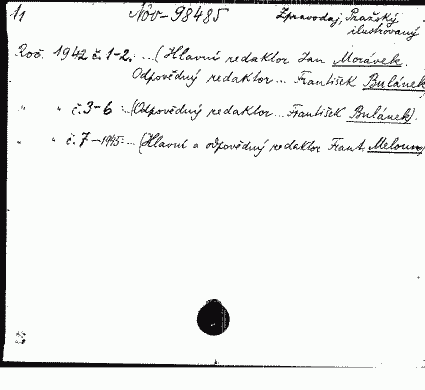 1₁ Nôv-98485 Zpravodaj, Pražský
ilustrovaný
Roč. 1942 č. 1-2: ... (Hlavní redaktor Jan Morávek.
Odpovědný redaktor... František Bulánek)
" " č. 3-6: ... (Odpovědný redaktor... František Bulánek).
" " č. 7-1945: ... (Hlavní a odpovědný redaktor Frant. Meloun)